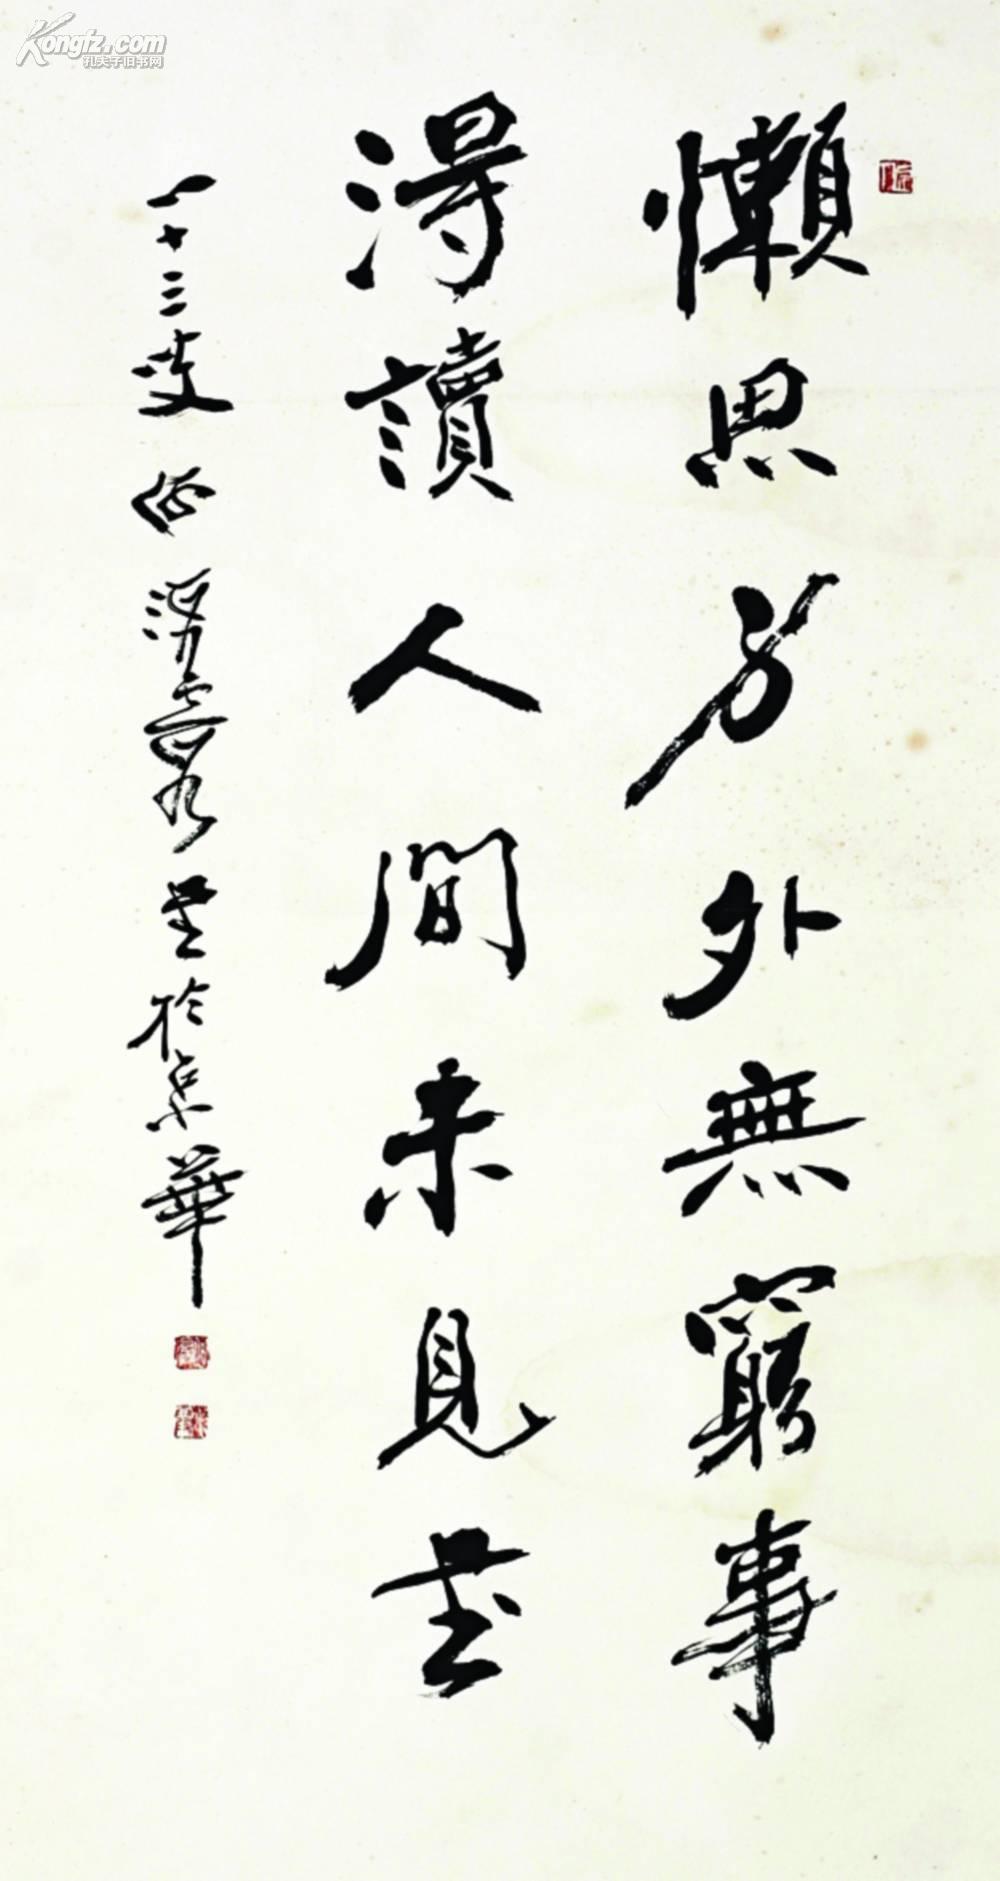 懶思身外無窮事
得讀人間未見書
書於京華
Kongfz.com
孔夫子旧书网